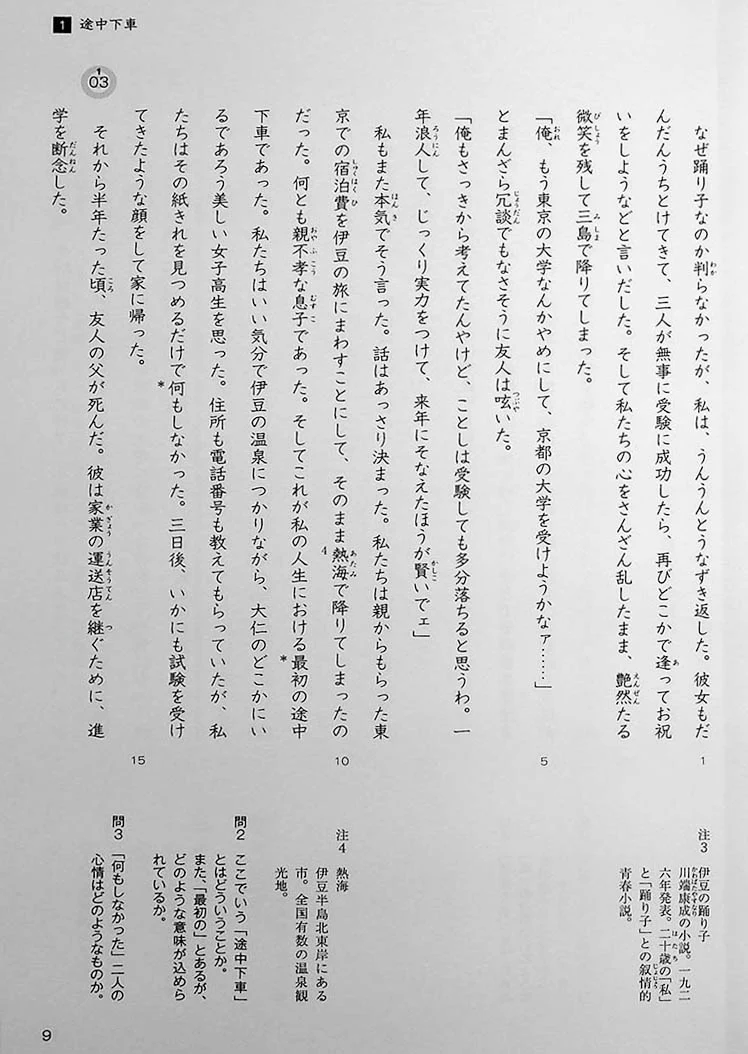 1 途中下車
1
03
なぜ踊り子なのか判らなかったが、私は、うんうんとうなずき返した。彼女もだ
んだんうちとけてきて、三人が無事に受験に成功したら、再びどこかで逢ってお祝
いをしようなどと言いだした。そして私たちの心をさんざん乱したまま、艶然たる
微笑を残して三島で降りてしまった。
「俺、もう東京の大学なんかやめにして、京都の大学を受けようかなァ……」
とまんざら冗談でもなさそうに友人は呟いた。
「俺もさっきから考えてたんやけど、ことしは受験しても多分落ちると思うわ。一
年浪人して、じっくり実力をつけて、来年にそなえたほうが賢いでェ」
私もまた本気でそう言った。話はあっさり決まった。私たちは親からもらった東
京での宿泊費を伊豆の旅にまわすことにして、そのまま熱海で降りてしまったの
だった。何とも親不孝な息子であった。そしてこれが私の人生における最初の途中
下車であった。私たちはいい気分で伊豆の温泉につかりながら、大仁のどこかにい
るであろう美しい女子高生を思った。住所も電話番号も教えてもらっていたが、私
たちはその紙きれを見つめるだけで何もしなかった。三日後、いかにも試験を受け
てきたような顔をして家に帰った。
それから半年たった頃、友人の父が死んだ。彼は家業の運送店を継ぐために、進
学を断念した。
1
5
10
15
注3 伊豆の踊り子
川端康成の小説。一九二
六年発表。二十歳の「私」
と「踊り子」との叙情的
青春小説。
注4 熱海
伊豆半島北東岸にある
市。全国有数の温泉観
光地。
問2 ここでいう「途中下車」
とはどういうことか。
また、「最初の」とあるが、
どのような意味が込めら
れているか。
問3 「何もしなかった」二人の
心情はどのようなものか。
9